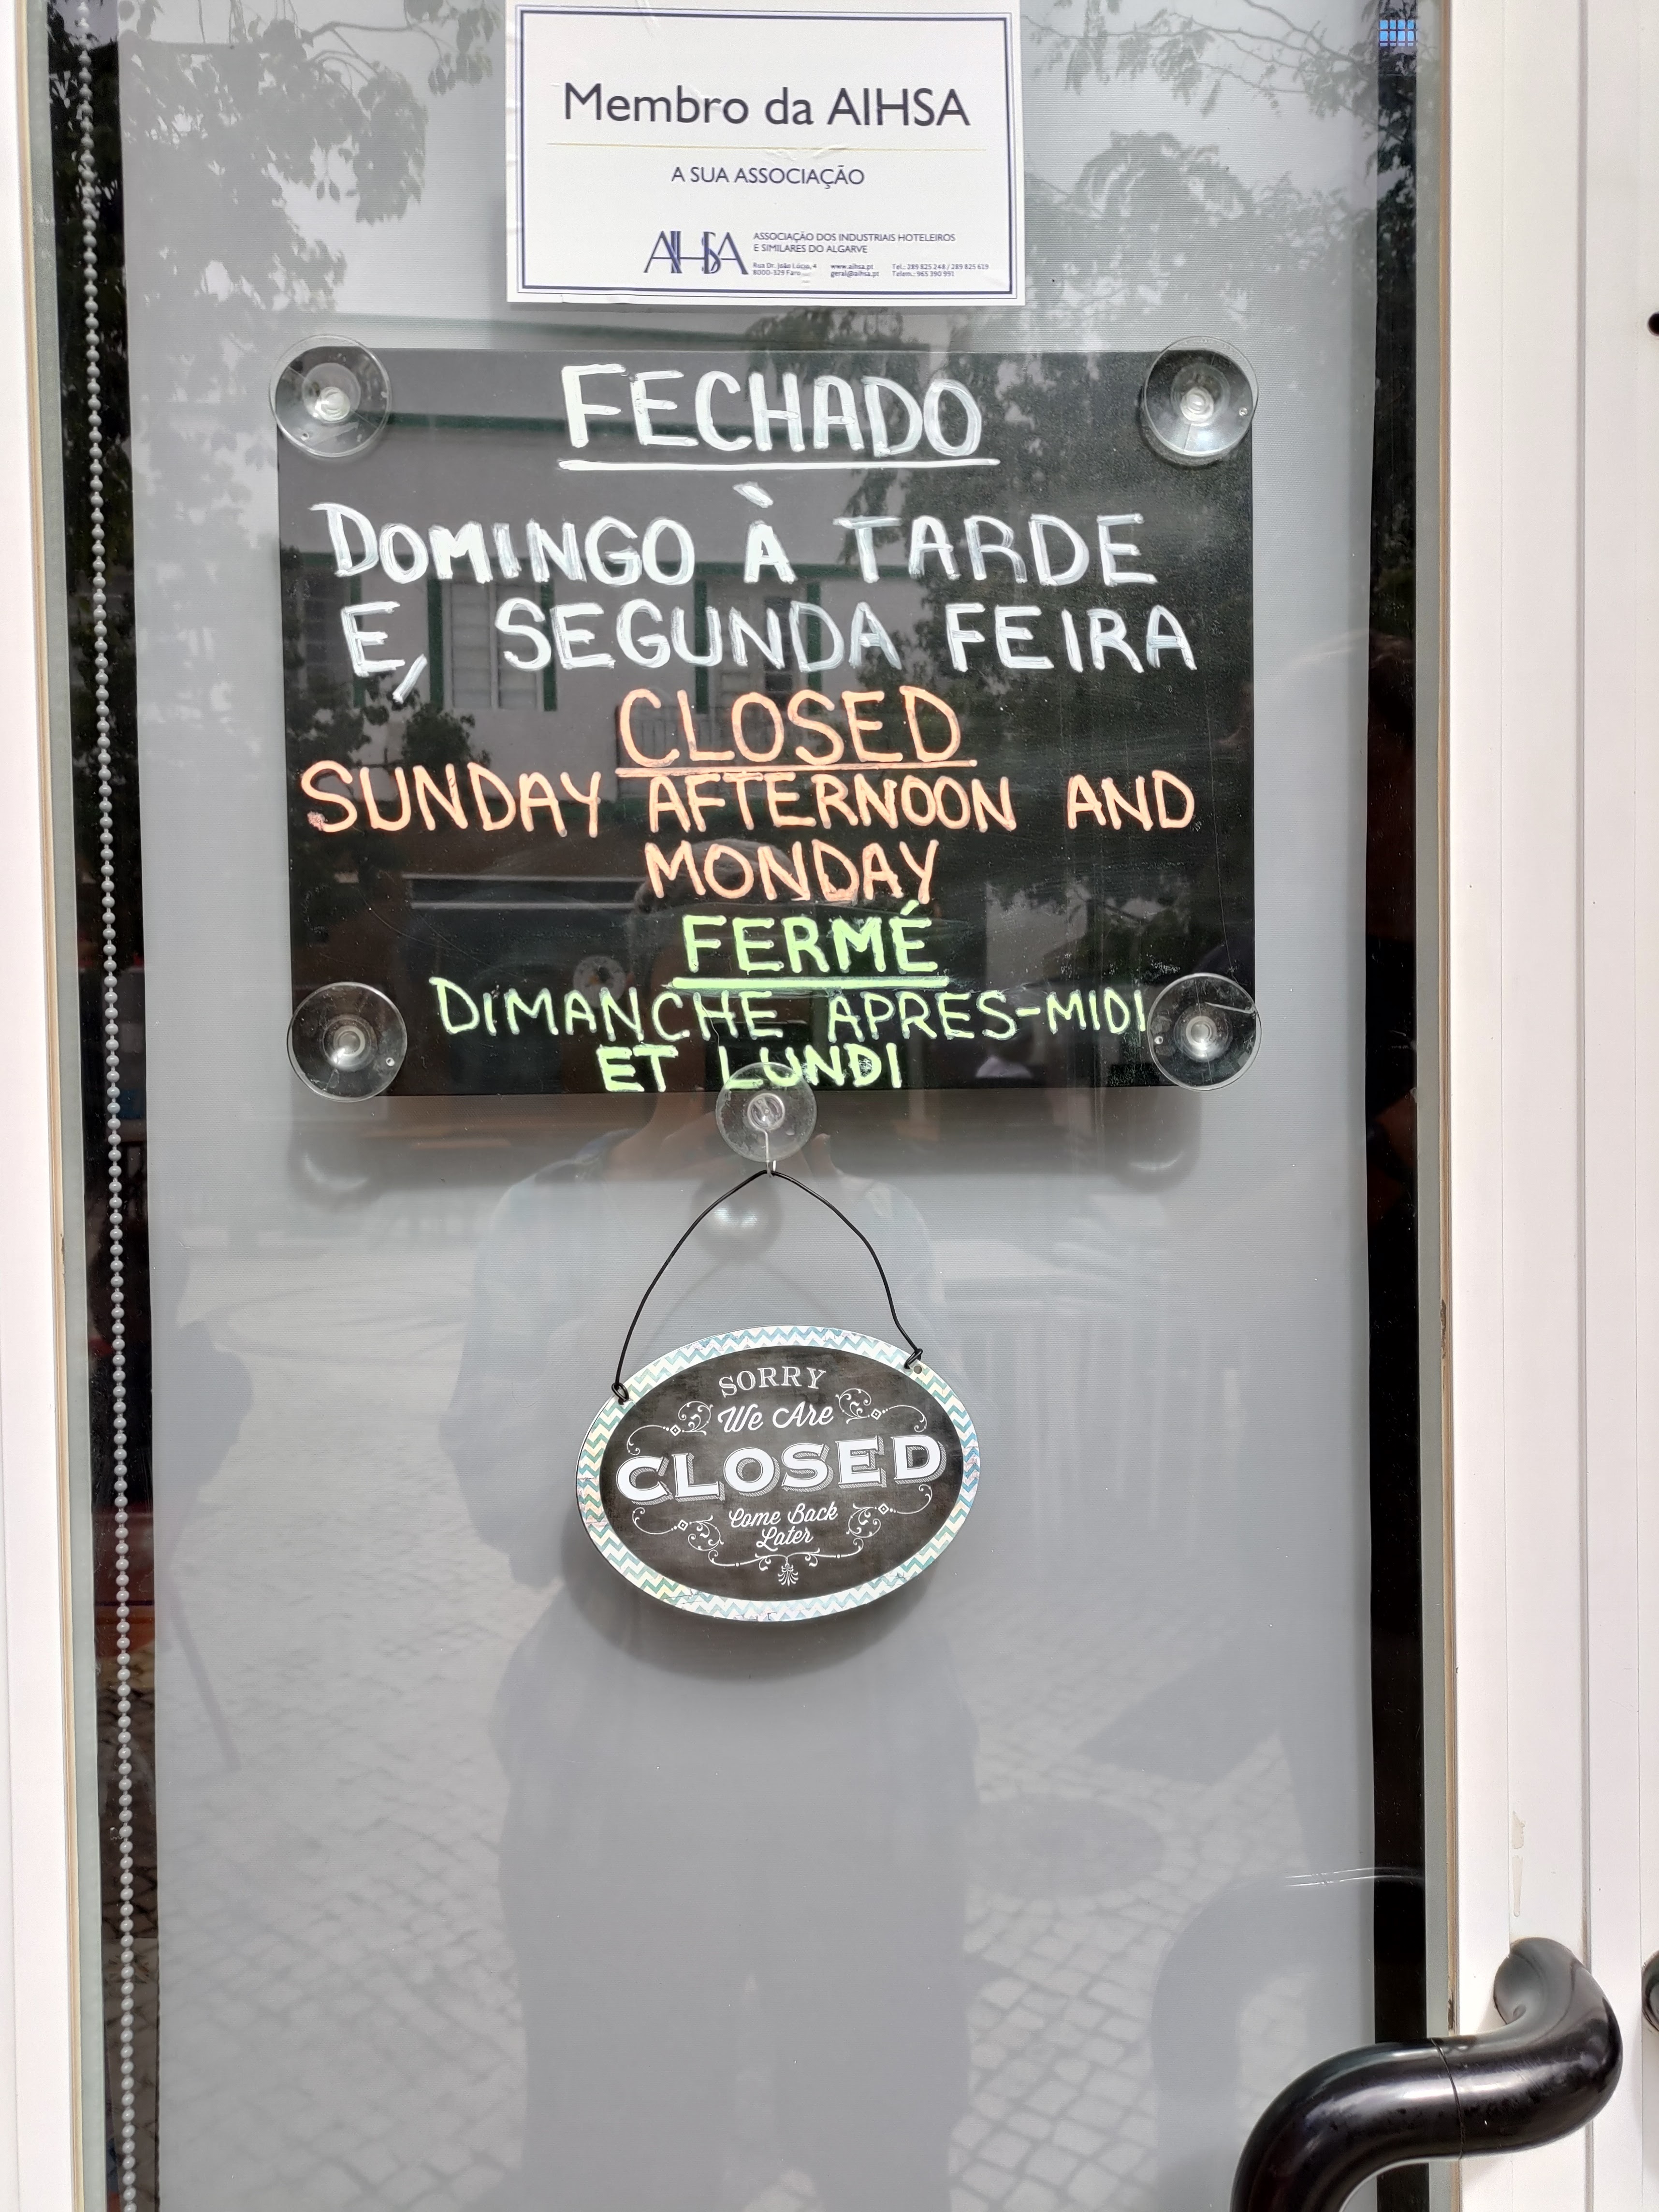 Membro da AIHSA
A SUA ASSOCIAÇÃO
AIHSA
ASSOCIAÇÃO DOS INDUSTRIAIS HOTELEIROS
E SIMILARES DO ALGARVE
Rua Dr. João Lúcio, 4 www.aihsa.pt Tel.: 289 825 248 / 289 825 619
8000-329 Faro geral@aihsa.pt Telem.: 965 390 991
FECHADO
DOMINGO À TARDE
E, SEGUNDA FEIRA
CLOSED
SUNDAY AFTERNOON AND
MONDAY
FERMÉ
DIMANCHE APRES-MIDI
ET LUNDI
SORRY
We Are
CLOSED
Come Back
Later